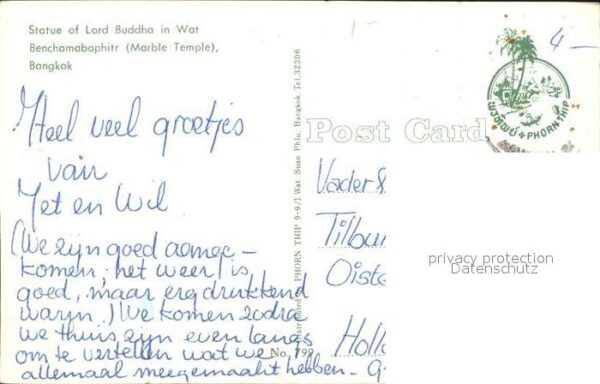 Statue of Lord Buddha in Wat
Benchamabophitr (Marble Temple),
Bangkok
4 —
Heel veel groetjes
van
Jet en Wil
(We zijn goed aange-
komen, het weer is
goed, maar erg drukkend
warm.) We komen zodra
we thuis zijn even langs
om te vertellen wat we
allemaal meegemaakt hebben -
PHORN THIP 9-9/1 Wat Suan Phlu. Bangkok Tel.32306
No. 799
Post Card
PHORN THIP
Vader &
Tilbur
Oiste
Holla
privacy protection
Datenschutz